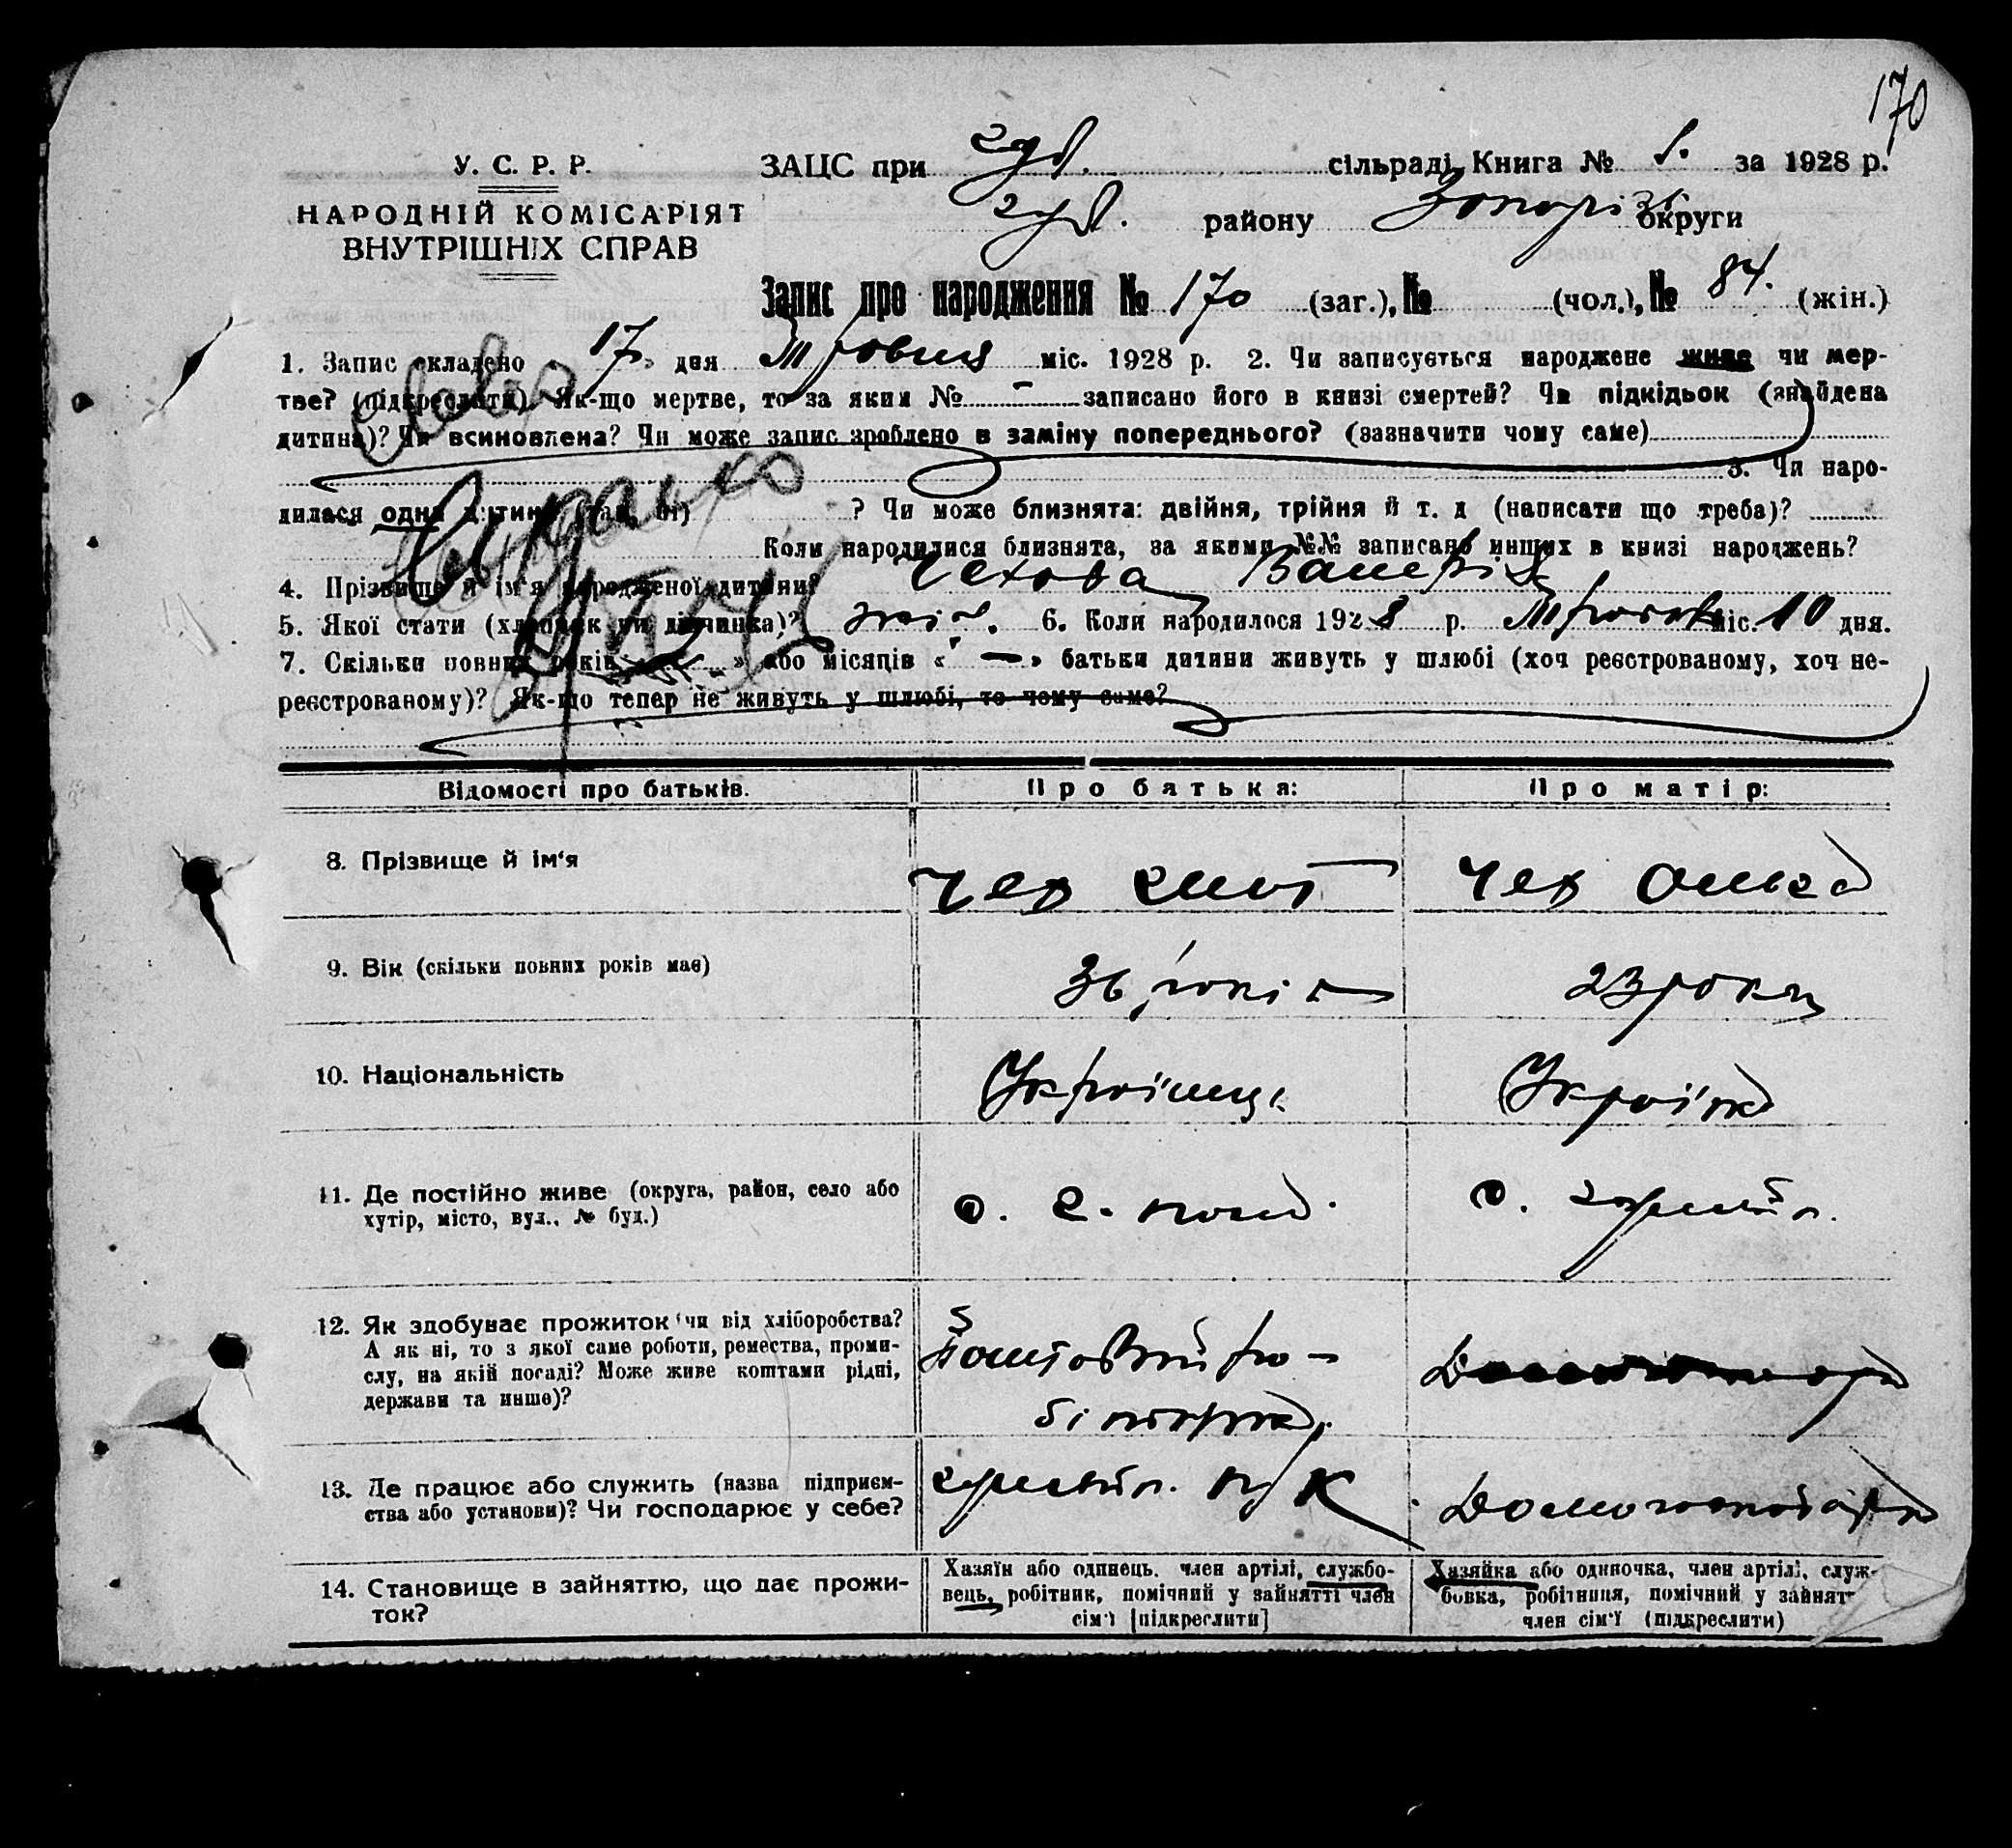 170
У. С. Р. Р.
НАРОДНІЙ КОМІСАРІЯТ
ВНУТРІШНІХ СПРАВ
ЗАЦС при сільраді, Книга № 1. за 1928 р.
району Запоріз округи
Запис про народження № 170 (заг.), № (чол.), № 84. (жін.)
1. Запис складено 17 дня Травня міс. 1928 р. 2. Чи записується народжене живе чи мер-
тве? (підкреслити). Як-що мертве, то за яким № – записано його в книзі смертей? Чи підкідьок (знайдена
дитина)? Чи всиновлена? Чи може запис зроблено в заміну попереднього? (зазначити чому саме)
3. Чи наро-
дилася одна дитина (так, ні) ? Чи може близнята: двійня, трійня й т. д (написати що треба)?
Коли народилися близнята, за якими №№ записано инших в книзі народжень?
4. Прізвище й ім'я народженої дитини? Чехова Валерія
5. Якої стати (хлопчик чи дівчинка)? жін. 6. Коли народилося 1928 р. Травня міс. 10 дня.
7. Скільки повних років « » або місяців « – » батьки дитини живуть у шлюбі (хоч реєстрованому, хоч не-
реєстрованому)? Як-що тепер не живуть у шлюбі, то чому саме?
Відомості про батьків. Про батька: Про матір:
8. Прізвище й ім'я Чех Чех Ольга
9. Вік (скільки повних років має) 36 років 23 роки
10. Національність Українець Українка
11. Де постійно живе (округа, район, село або
хутір, місто, вул., № буд.)
12. Як здобуває прожиток (чи від хліборобства?
А як ні, то з якої саме роботи, ремества, проми-
слу, на якій посаді? Може живе коштами рідні,
держави та инше)?
13. Де працює або служить (назва підприєм-
ства або установи)? Чи господарює у себе? Домогосподарка
14. Становище в зайняттю, що дає прожи-
ток?
Хазяїн або одинець, член артілі, службо-
вець, робітник, помічний у зайнятті член
сім'ї [підкреслити]
Хазяйка або одиночка, член артілі, служ-
бовка, робітниця, помічний у зайнят
член сім'ї (підкреслити)